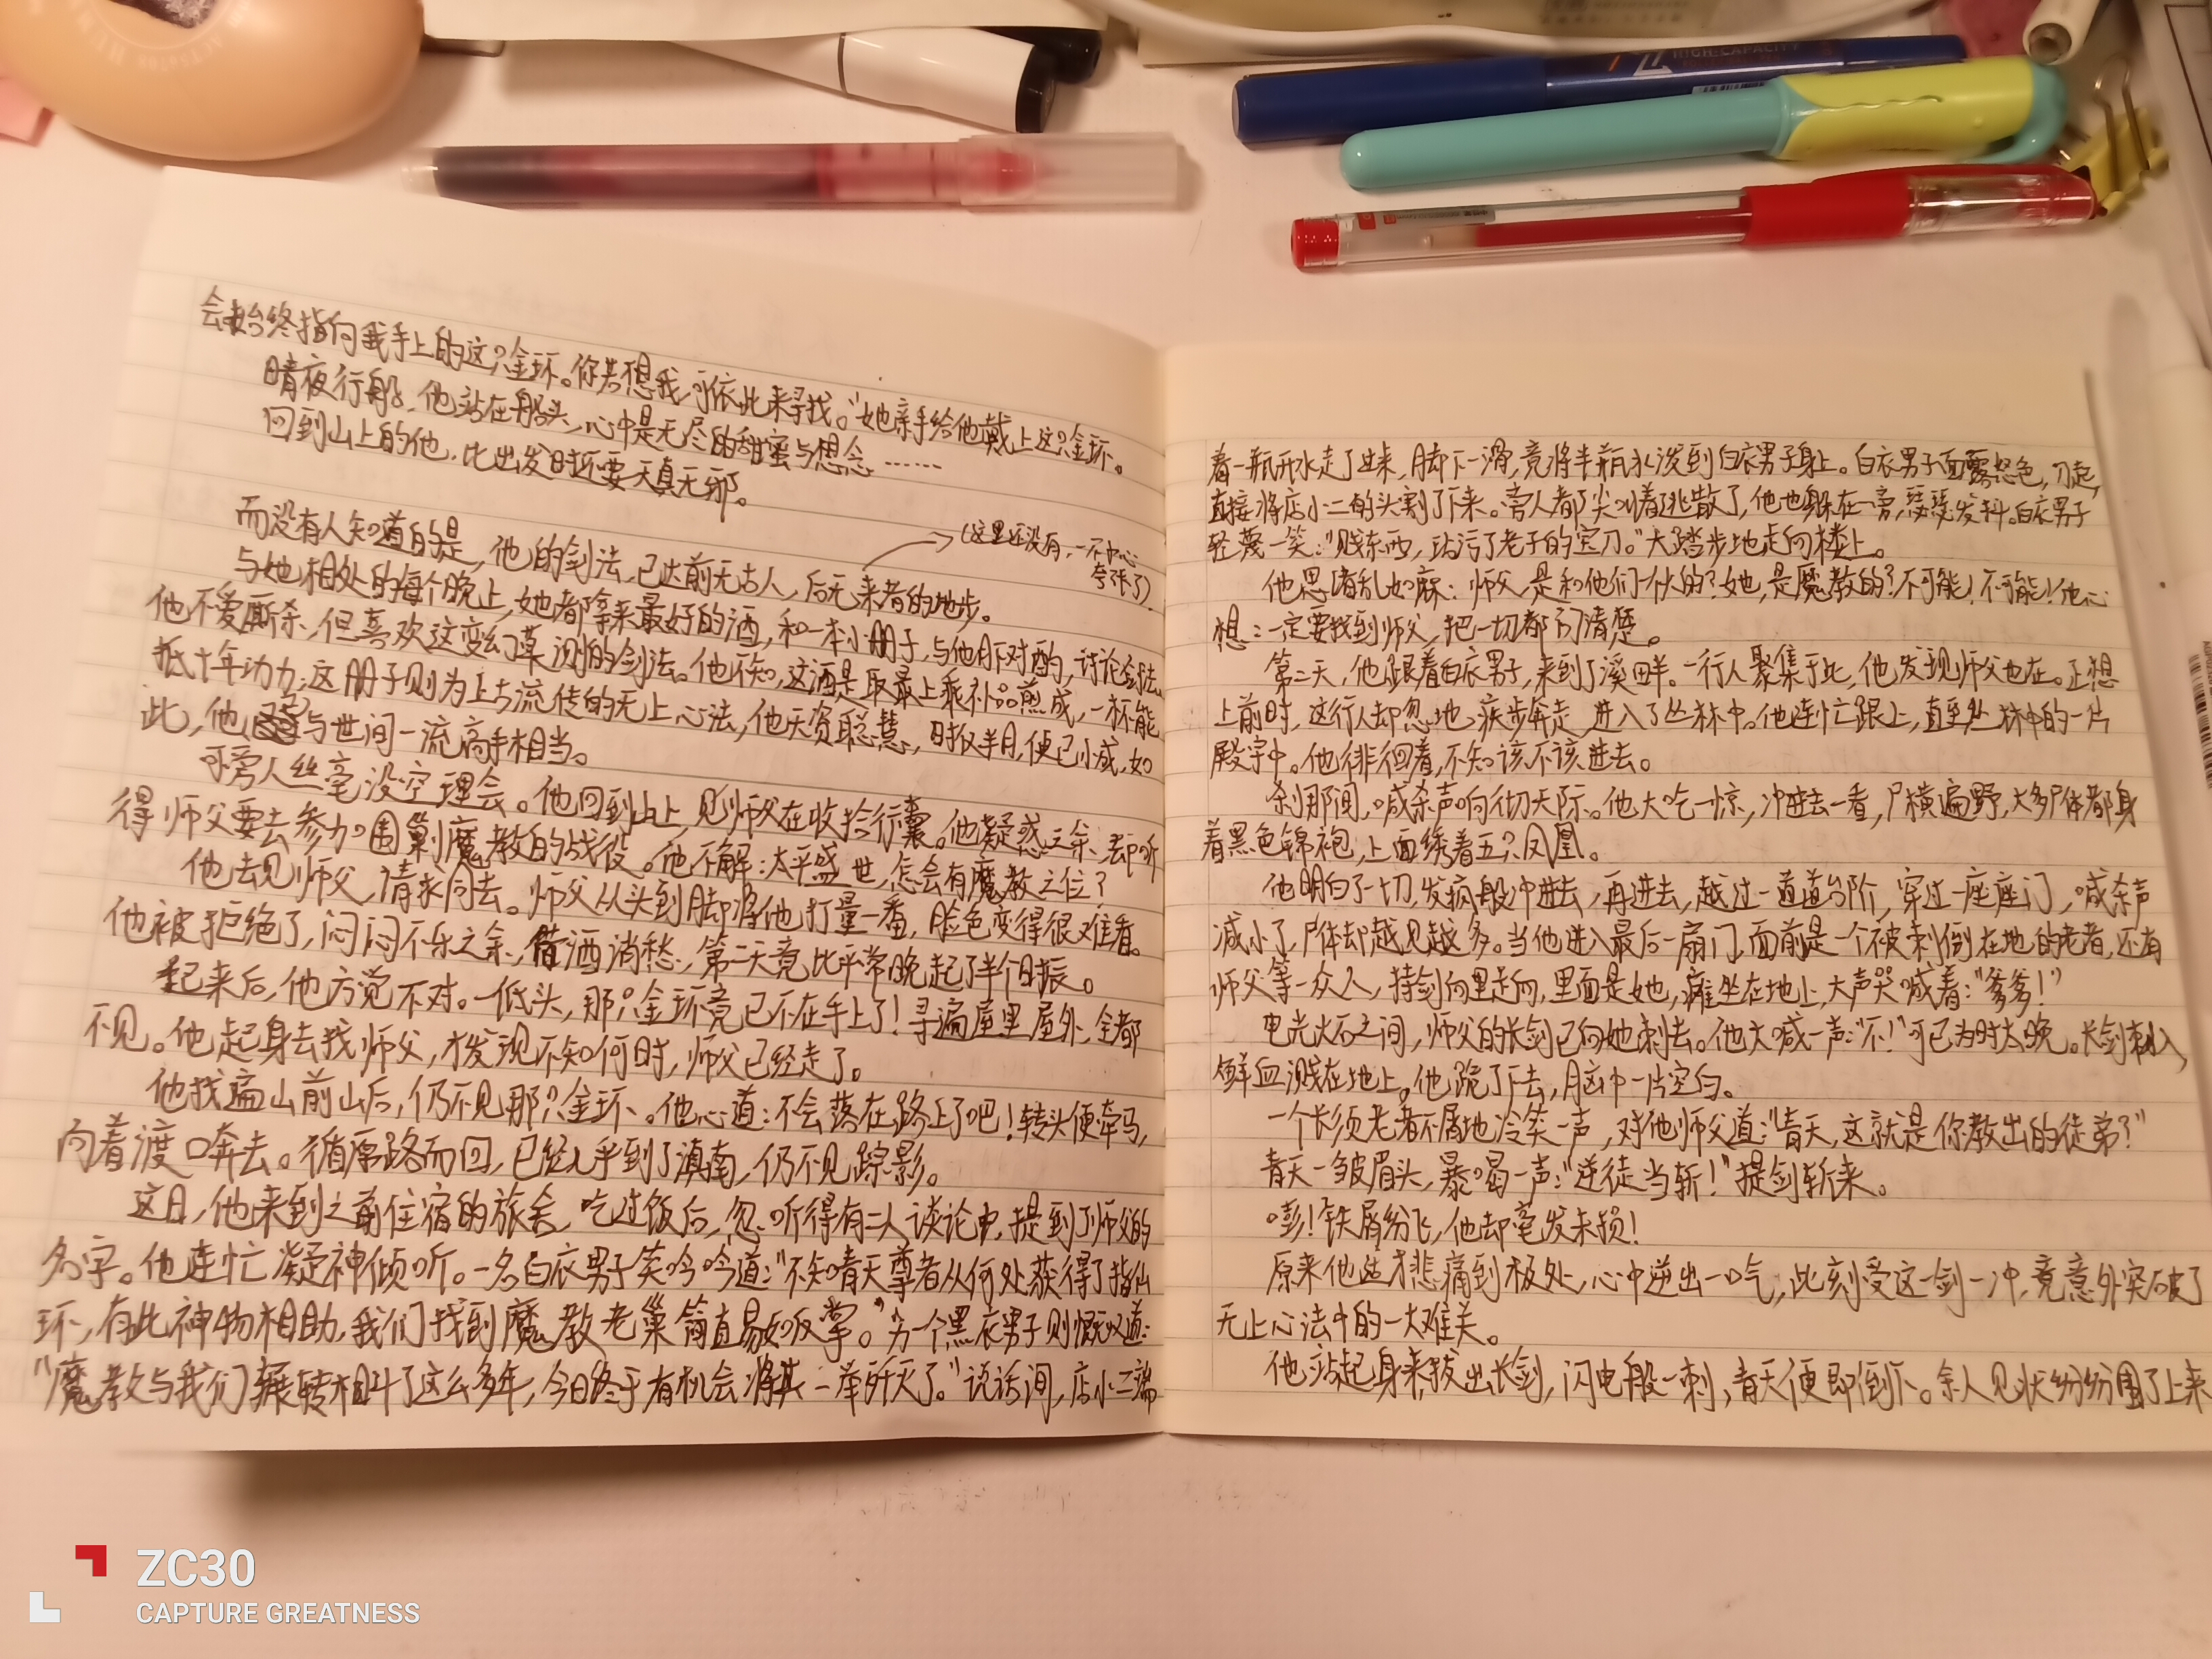 HIGH-CAPACITY
会始终指向我手上的这只金环。你若想我,可依此来寻找。"她亲手给他戴上这只金环。
晴夜行船,他站在船头,心中是无尽的甜蜜与想念……
回到山上的他,比出发时还要天真无邪。
而没有人知道的是,他的剑法,已达前无古人,后无来者的地步。
(这里还没有,一不小心
夸张了)
与她相处的每个晚上,她都拿来最好的酒,和一本小册子,与他月下对酌,讨论剑法。
他不爱厮杀,但喜欢这变幻莫测的剑法。他不知,这酒是取最上乘补品煎成,一杯能
抵十年功力;这册子则为上古流传的无上心法,他天资聪慧,时仅半月,便已小成,如
此,他与世间一流高手相当。
可旁人丝毫没空理会。他回到山上,见师父在收拾行囊。他疑惑之余,却听
得师父要去参加围剿魔教的战役。他不解:太平盛世,怎会有魔教之位?
他去见师父,请求同去。师父从头到脚将他打量一番,脸色变得很难看。
他被拒绝了,闷闷不乐之余,借酒消愁,第二天竟比平常晚起了半个时辰。
起来后,他方觉不对。一低头,那只金环竟已不在手上了!寻遍屋里屋外,全都
不见。他起身去找师父,才发现不知何时,师父已经走了。
他找遍山前山后,仍不见那只金环。他心道:不会落在路上了吧!转头便牵马,
向着渡口奔去。循原路而回,已经几乎到了滇南,仍不见踪影。
这日,他来到之前住宿的旅舍,吃过饭后,忽听得有二人谈论中,提到了师父的
名字。他连忙凝神倾听。一名白衣男子笑吟吟道:"不知青天尊者从何处获得了指仙
环,有此神物相助,我们找到魔教老巢简直易如反掌。"另一个黑衣男子则慨叹道:
"魔教与我们辗转相斗了这么多年,今日终于有机会将其一举歼灭了。"说话间,店小二端
着一瓶开水走了过来,脚下一滑,竟将半瓶水泼到白衣男子身上。白衣男子面露怒色,刀起,
直接将店小二的头割了下来。旁人都尖叫着逃散了,他也躲在一旁,瑟瑟发抖。白衣男子
轻蔑一笑:"贱东西,玷污了老子的宝刀。"大踏步地走向楼上。
他思绪乱如麻:师父,是和他们一伙的?她,是魔教的?不可能!不可能!他心
想:一定要找到师父,把一切都问清楚。
第二天,他跟着白衣男子,来到了溪畔。一行人聚集于此,他发现师父也在。正想
上前时,这行人却忽地疾步奔走,进入了丛林中。他连忙跟上,直至丛林中的一片
殿宇中。他徘徊着,不知该不该进去。
刹那间,喊杀声响彻天际。他大吃一惊,冲进去一看,尸横遍野,大多尸体都身
着黑色锦袍,上面绣着五只凤凰。
他明白了一切,发疯般冲进去,再进去,越过一道道台阶,穿过一座座门,喊杀声
减小了,尸体却越见越多。当他进入最后一扇门,面前是一个被刺倒在地的老者,还有
师父等一众人,持剑向里走向,里面是她,瘫坐在地上,大声哭喊着:"爹爹!"
电光火石之间,师父的长剑已向她刺去。他大喊一声:"不!"可已为时太晚。长剑刺入,
鲜血溅在地上。他跪了下去,脑中一片空白。
一个长须老者不屑地冷笑一声,对他师父道:"青天,这就是你教出的徒弟?"
青天一皱眉头,暴喝一声:"逆徒当斩!"提剑斩来。
嘭!铁屑纷飞,他却毫发未损!
原来他适才悲痛到极处,心中逆出一口气,此刻受这一剑一冲,竟意外突破了
无上心法中的一大难关。
他站起身来,拔出长剑,闪电般一刺,青天便即倒下。余人见状纷纷围了上来
ZC30
CAPTURE GREATNESS